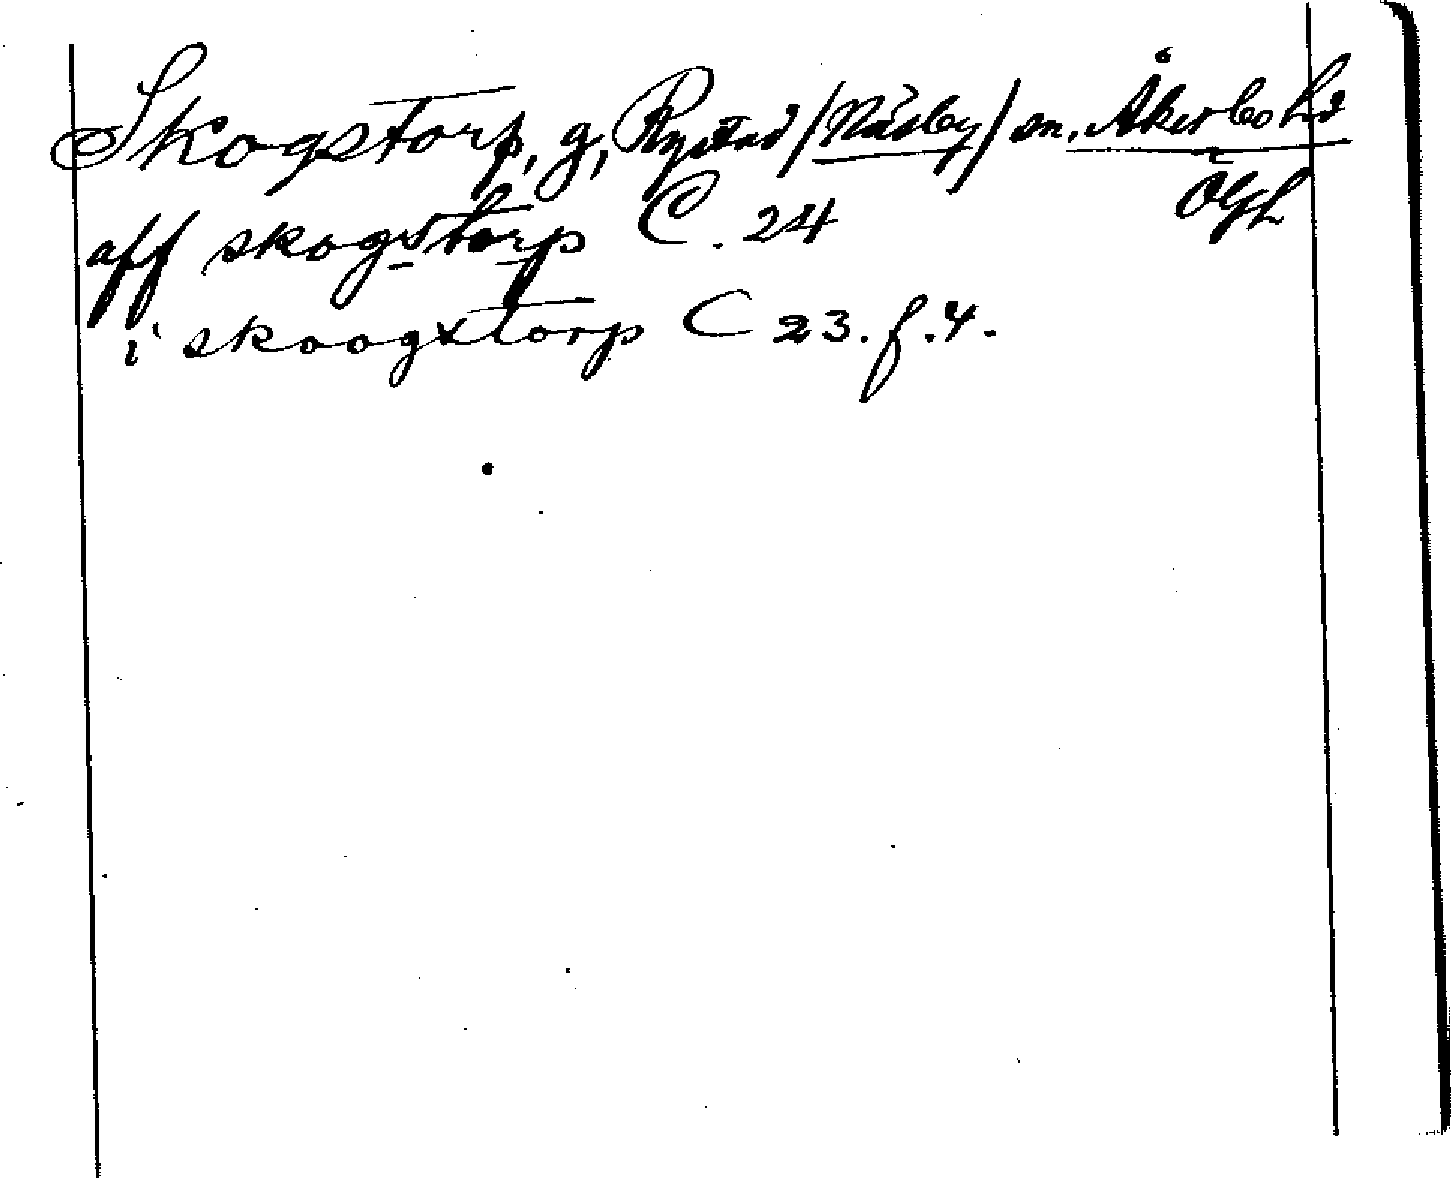 Skogstorp, g, Rystad /Näsby/ sn, Åkerbo hd
ÖgL
aff skogstorp C. 24
i skoogxtorp C 23. f. 4.